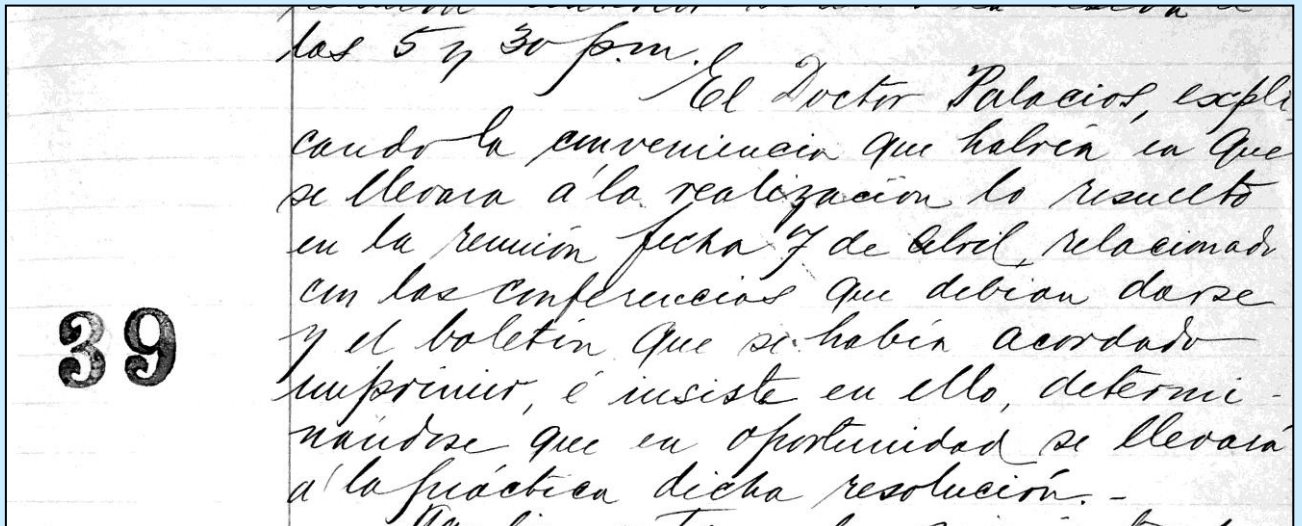 las 5 y 30 p.m.
El Doctor Palacios, expli
cando la conveniencia que habría en que
se llevara á la realización lo resuelto
en la reunión fecha 7 de Abril, relacionado
con las conferencias que debían darse
y el boletín que se había acordado
39
imprimir, é insiste en ello, determi-
nándose que en oportunidad se llevará
á la práctica dicha resolución.-